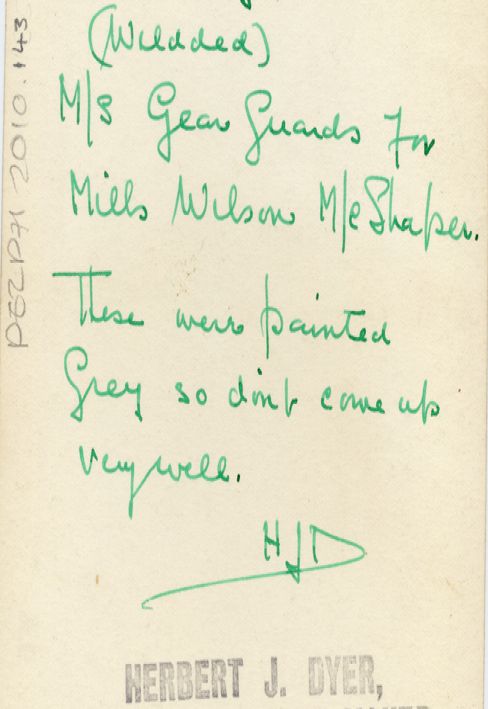 (Wildded)
M/s Gear Guards For
Mills Wilson M/c Shaper.
These were painted
Grey so don't come up
very well.
HJD
HERBERT J. DYER,
PEZPH 2010.143